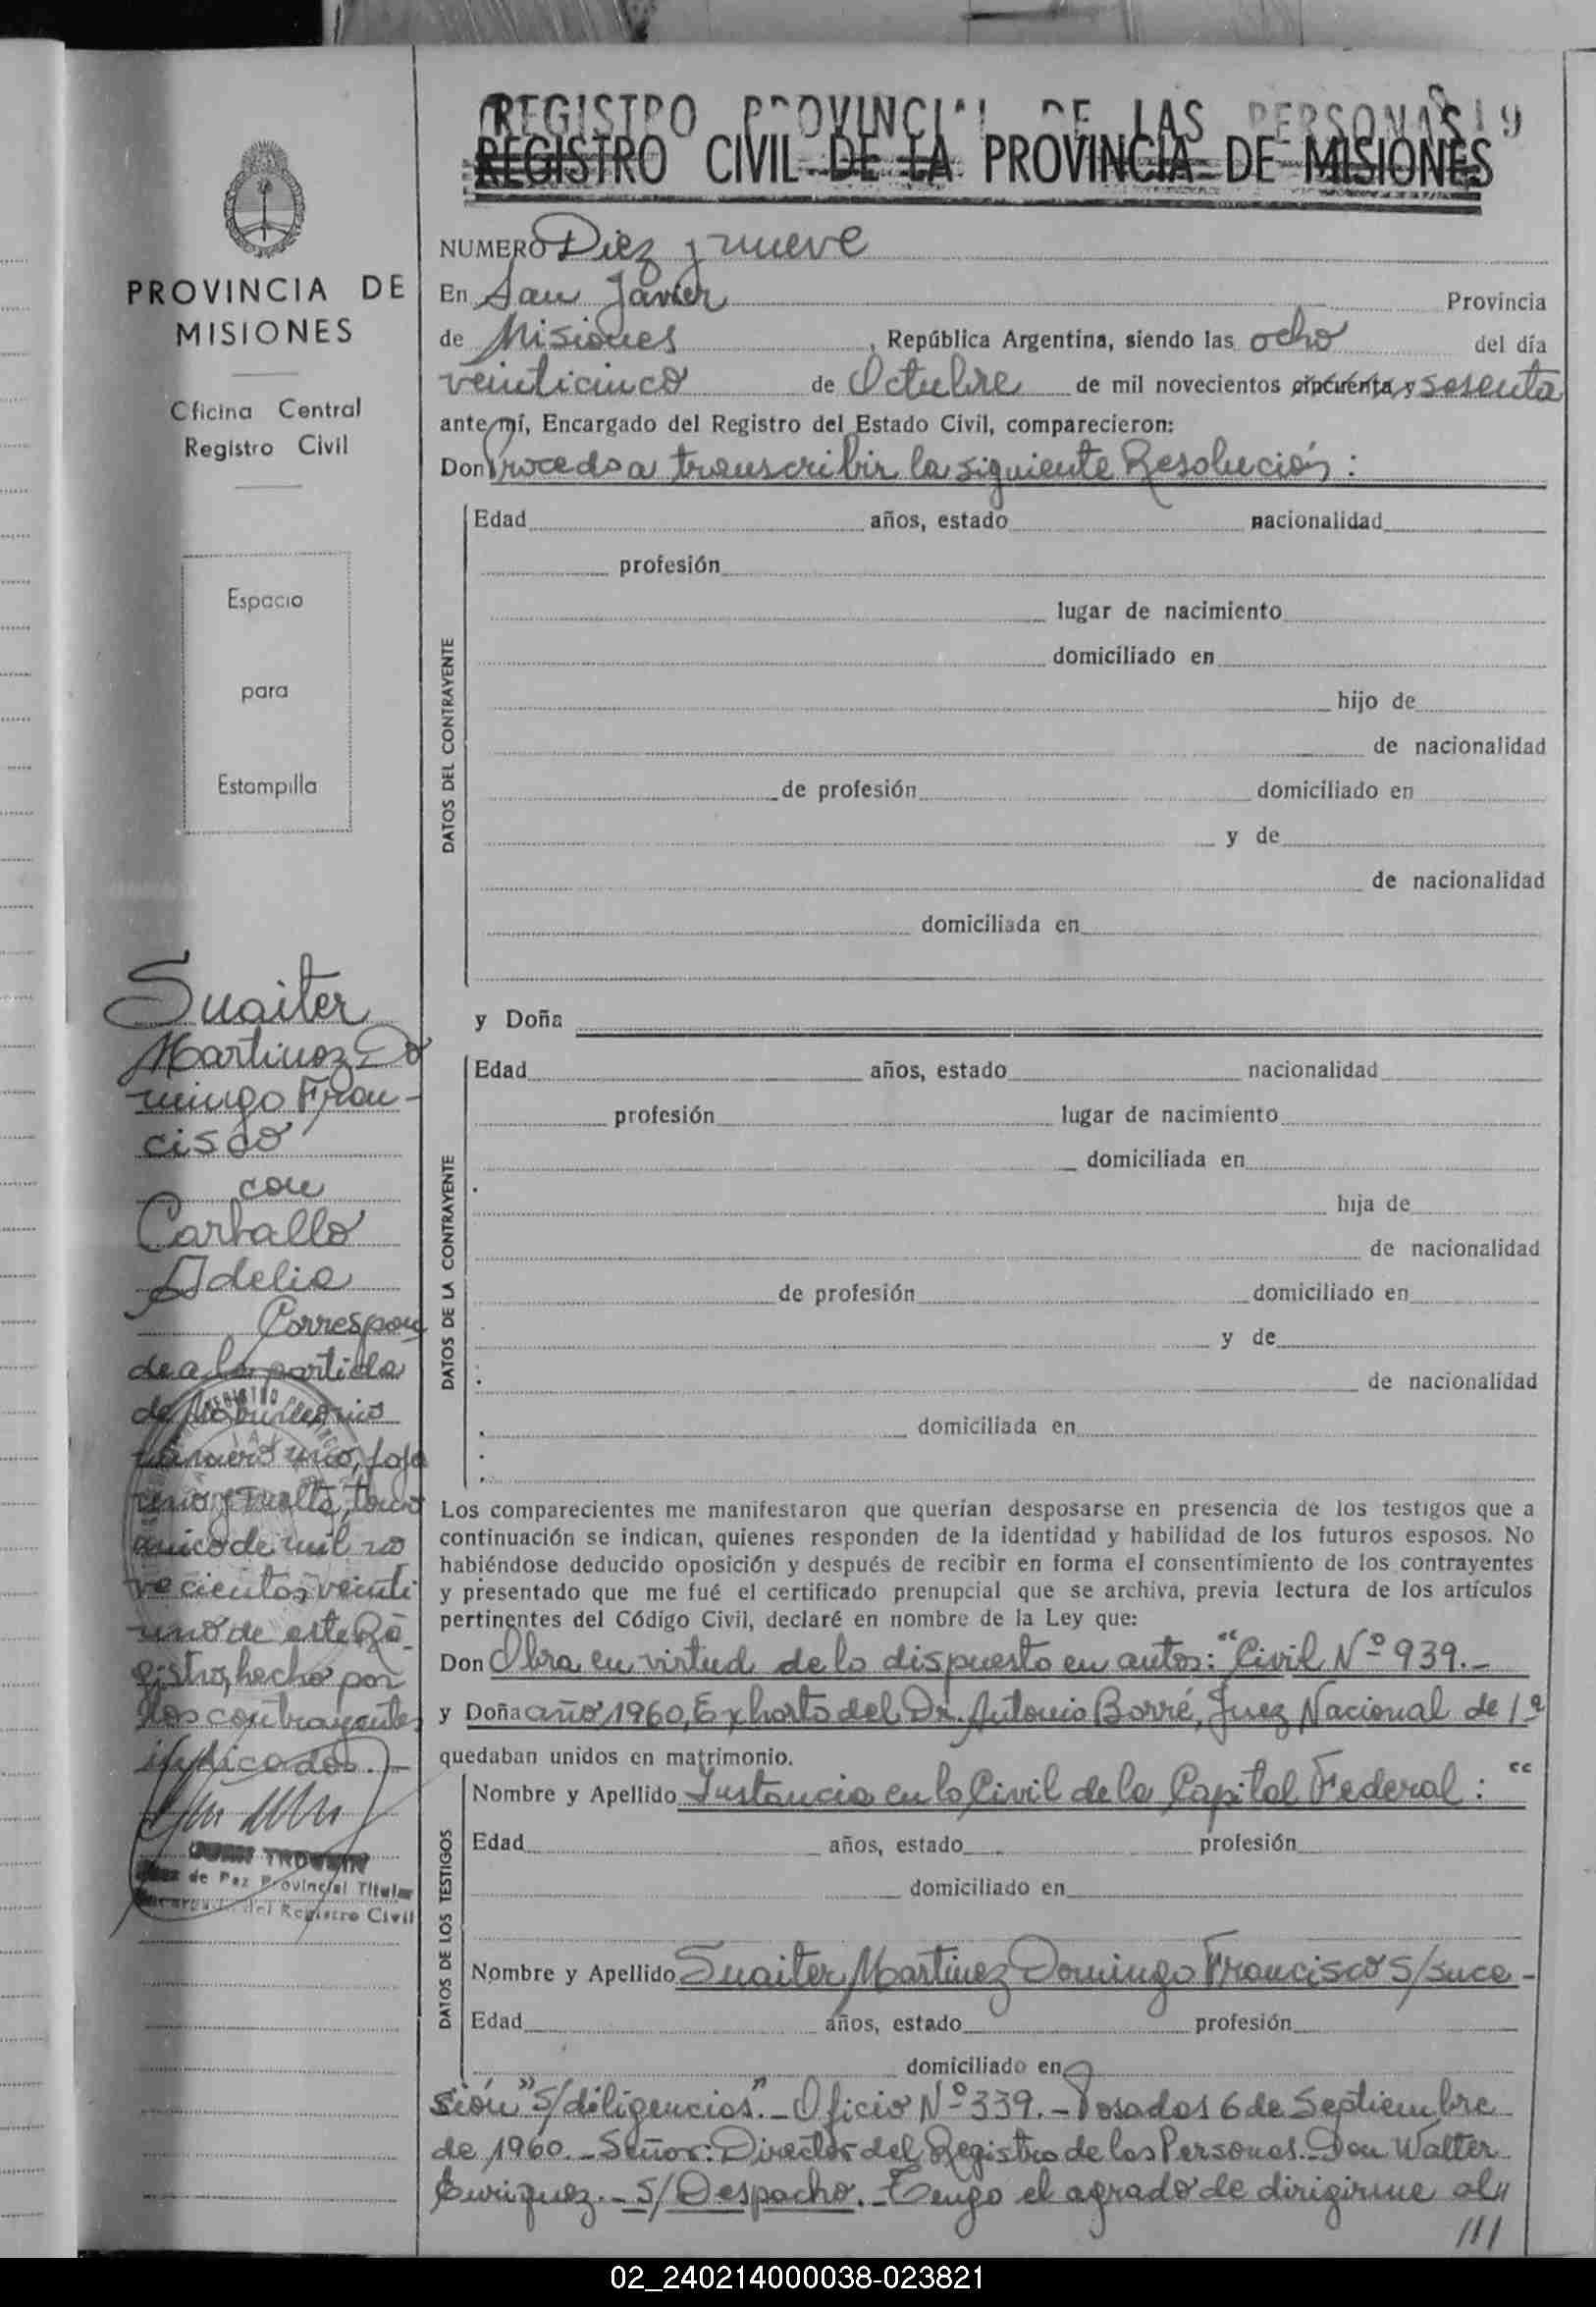 REGISTRO PROVINCIAL DE LAS PERSONAS 19
REGISTRO CIVIL DE LA PROVINCIA DE MISIONES
PROVINCIA DE
MISIONES
Oficina Central
Registro Civil
Espacio
para
Estampilla
Suaiter
Martinez Do
mingo Fran-
cisco
con
Carballo
Adelia
Correspon
de a la partida
de Matrimonio
número uno, foja
uno y vuelta, tomo
unico de mil no
vecientos veinti
uno de este Re-
gistro, hecho por
los contrayentes
indicados.-
Juez de Paz Provincial Titular
Encargado del Registro Civil
NUMERO Diez y nueve
En San Javier Provincia
de Misiones, República Argentina, siendo las ocho del día
veinticinco de Octubre de mil novecientos cincuenta y sesenta
ante mí, Encargado del Registro del Estado Civil, comparecieron:
Don Procedo a transcribir la siguiente Resolución:
DATOS DEL CONTRAYENTE
Edad años, estado nacionalidad
profesión
lugar de nacimiento
domiciliado en
hijo de
de nacionalidad
de profesión domiciliado en
y de
de nacionalidad
domiciliada en
y Doña
DATOS DE LA CONTRAYENTE
Edad años, estado nacionalidad
profesión lugar de nacimiento
domiciliada en
hija de
de nacionalidad
de profesión domiciliado en
y de
de nacionalidad
domiciliada en
Los comparecientes me manifestaron que querían desposarse en presencia de los testigos que a
continuación se indican, quienes responden de la identidad y habilidad de los futuros esposos. No
habiéndose deducido oposición y después de recibir en forma el consentimiento de los contrayentes
y presentado que me fué el certificado prenupcial que se archiva, previa lectura de los artículos
pertinentes del Código Civil, declaré en nombre de la Ley que:
Don Obra en virtud de lo dispuesto en autos: "Civil Nº 939.-
y Doña año 1960, Exhorto del Dr. Antonio Borré, Juez Nacional de 1ª
quedaban unidos en matrimonio.
DATOS DE LOS TESTIGOS
Nombre y Apellido Instancia en lo Civil de la Capital Federal: "
Edad años, estado profesión
domiciliado en
Nombre y Apellido Suaiter Martinez Domingo Francisco S/suce-
Edad años, estado profesión
domiciliado en
sión" S/diligencias".- Oficio Nº 339.- Posadas 6 de Septiembre
de 1960.- Señor: Director del Registro de las Personas.- Don Walter
Enriquez.- S/Despacho.- Tengo el agrado de dirigirme al
///
02_240214000038-023821